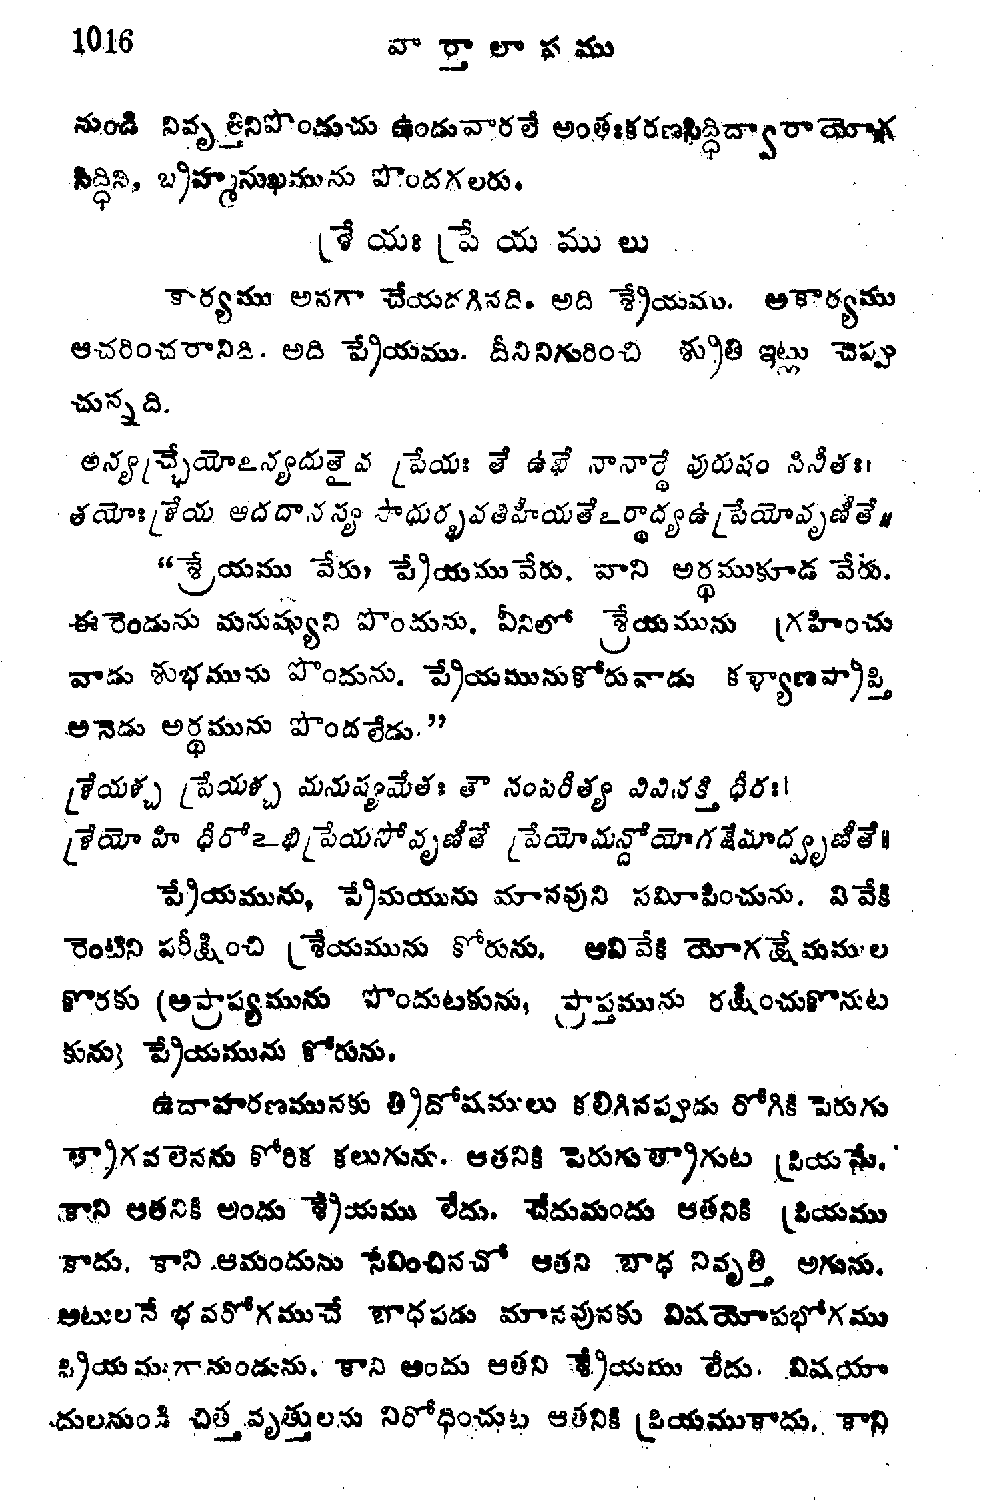 1016
వార్తాలాపము
నుండి నివృత్తినిపొందుచు ఉండువారలే అంతఃకరణసిద్ధిద్వారా యోగ
సిద్ధిని, బ్రహ్మసుఖమును పొందగలరు.
శ్రేయః ప్రేయములు
కార్యము అనగా చేయదగినది. అది శ్రేయము. అకార్యము
ఆచరించరానిది. అది ప్రేయము. దీనినిగురించి శ్రుతి ఇట్లు చెప్పు
చున్నది.
అన్యచ్ఛ్రేయోఽన్యదుతైవ ప్రేయః తే ఉభే నానార్థే పురుషం సినీతః।
తయోః శ్రేయ ఆదదానన్య సాధుర్భవతిహీయతేఽర్థాద్యఉప్రేయోవృణీతే॥
“శ్రేయము వేరు, ప్రేయమువేరు. వాని అర్థముకూడ వేరు.
ఈ రెండును మనుష్యుని పొందును. వీనిలో శ్రేయమును గ్రహించు
వాడు శుభమును పొందును. ప్రేయమునుకోరువాడు కళ్యాణప్రాప్తి
అనెడు అర్థమును పొందలేడు.”
శ్రేయశ్చ ప్రేయశ్చ మనుష్యమేతః తౌ సంపరీత్య వివినక్తి ధీరః।
శ్రేయో హి ధీరోఽభిప్రేయసోవృణీతే ప్రేయోమన్దోయోగక్షేమాద్వృణీతే॥
ప్రేయమును, ప్రేమయును మానవుని సమీపించును. వివేకి
రెంటిని పరీక్షించి శ్రేయమును కోరును. అవివేకి యోగక్షేమముల
కొరకు (అప్రాప్యమును పొందుటకును, ప్రాప్తమును రక్షించుకొనుట
కును) ప్రేయమును కోరును.
ఉదాహరణమునకు త్రిదోషములు కలిగినప్పుడు రోగికి పెరుగు
త్రాగవలెనను కోరిక కలుగును. ఆతనికి పెరుగుత్రాగుట ప్రియమే.
కాని ఆతనికి అందు శ్రేయము లేదు. చేదుమందు ఆతనికి ప్రియము
కాదు. కాని ఆమందును సేవించినచో ఆతని బాధ నివృత్తి అగును.
అటులనే భవరోగముచే బాధపడు మానవునకు విషయోపభోగము
ప్రియముగానుండును. కాని అందు ఆతని శ్రేయము లేదు. విషయా
దులనుండి చిత్తవృత్తులను నిరోధించుట ఆతనికి ప్రియముకాదు. కాని